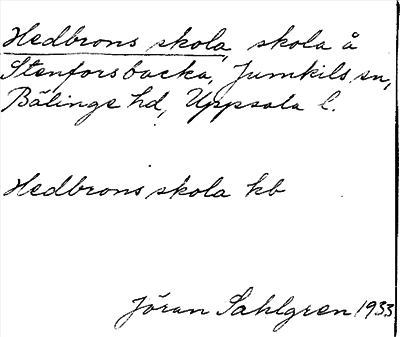 Hedbrons skola, skola å
Stenforsbacka, Jumkils sn,
Bälinge hd, Uppsala l.
Hedbrons skola kb
Jöran Sahlgren 1933